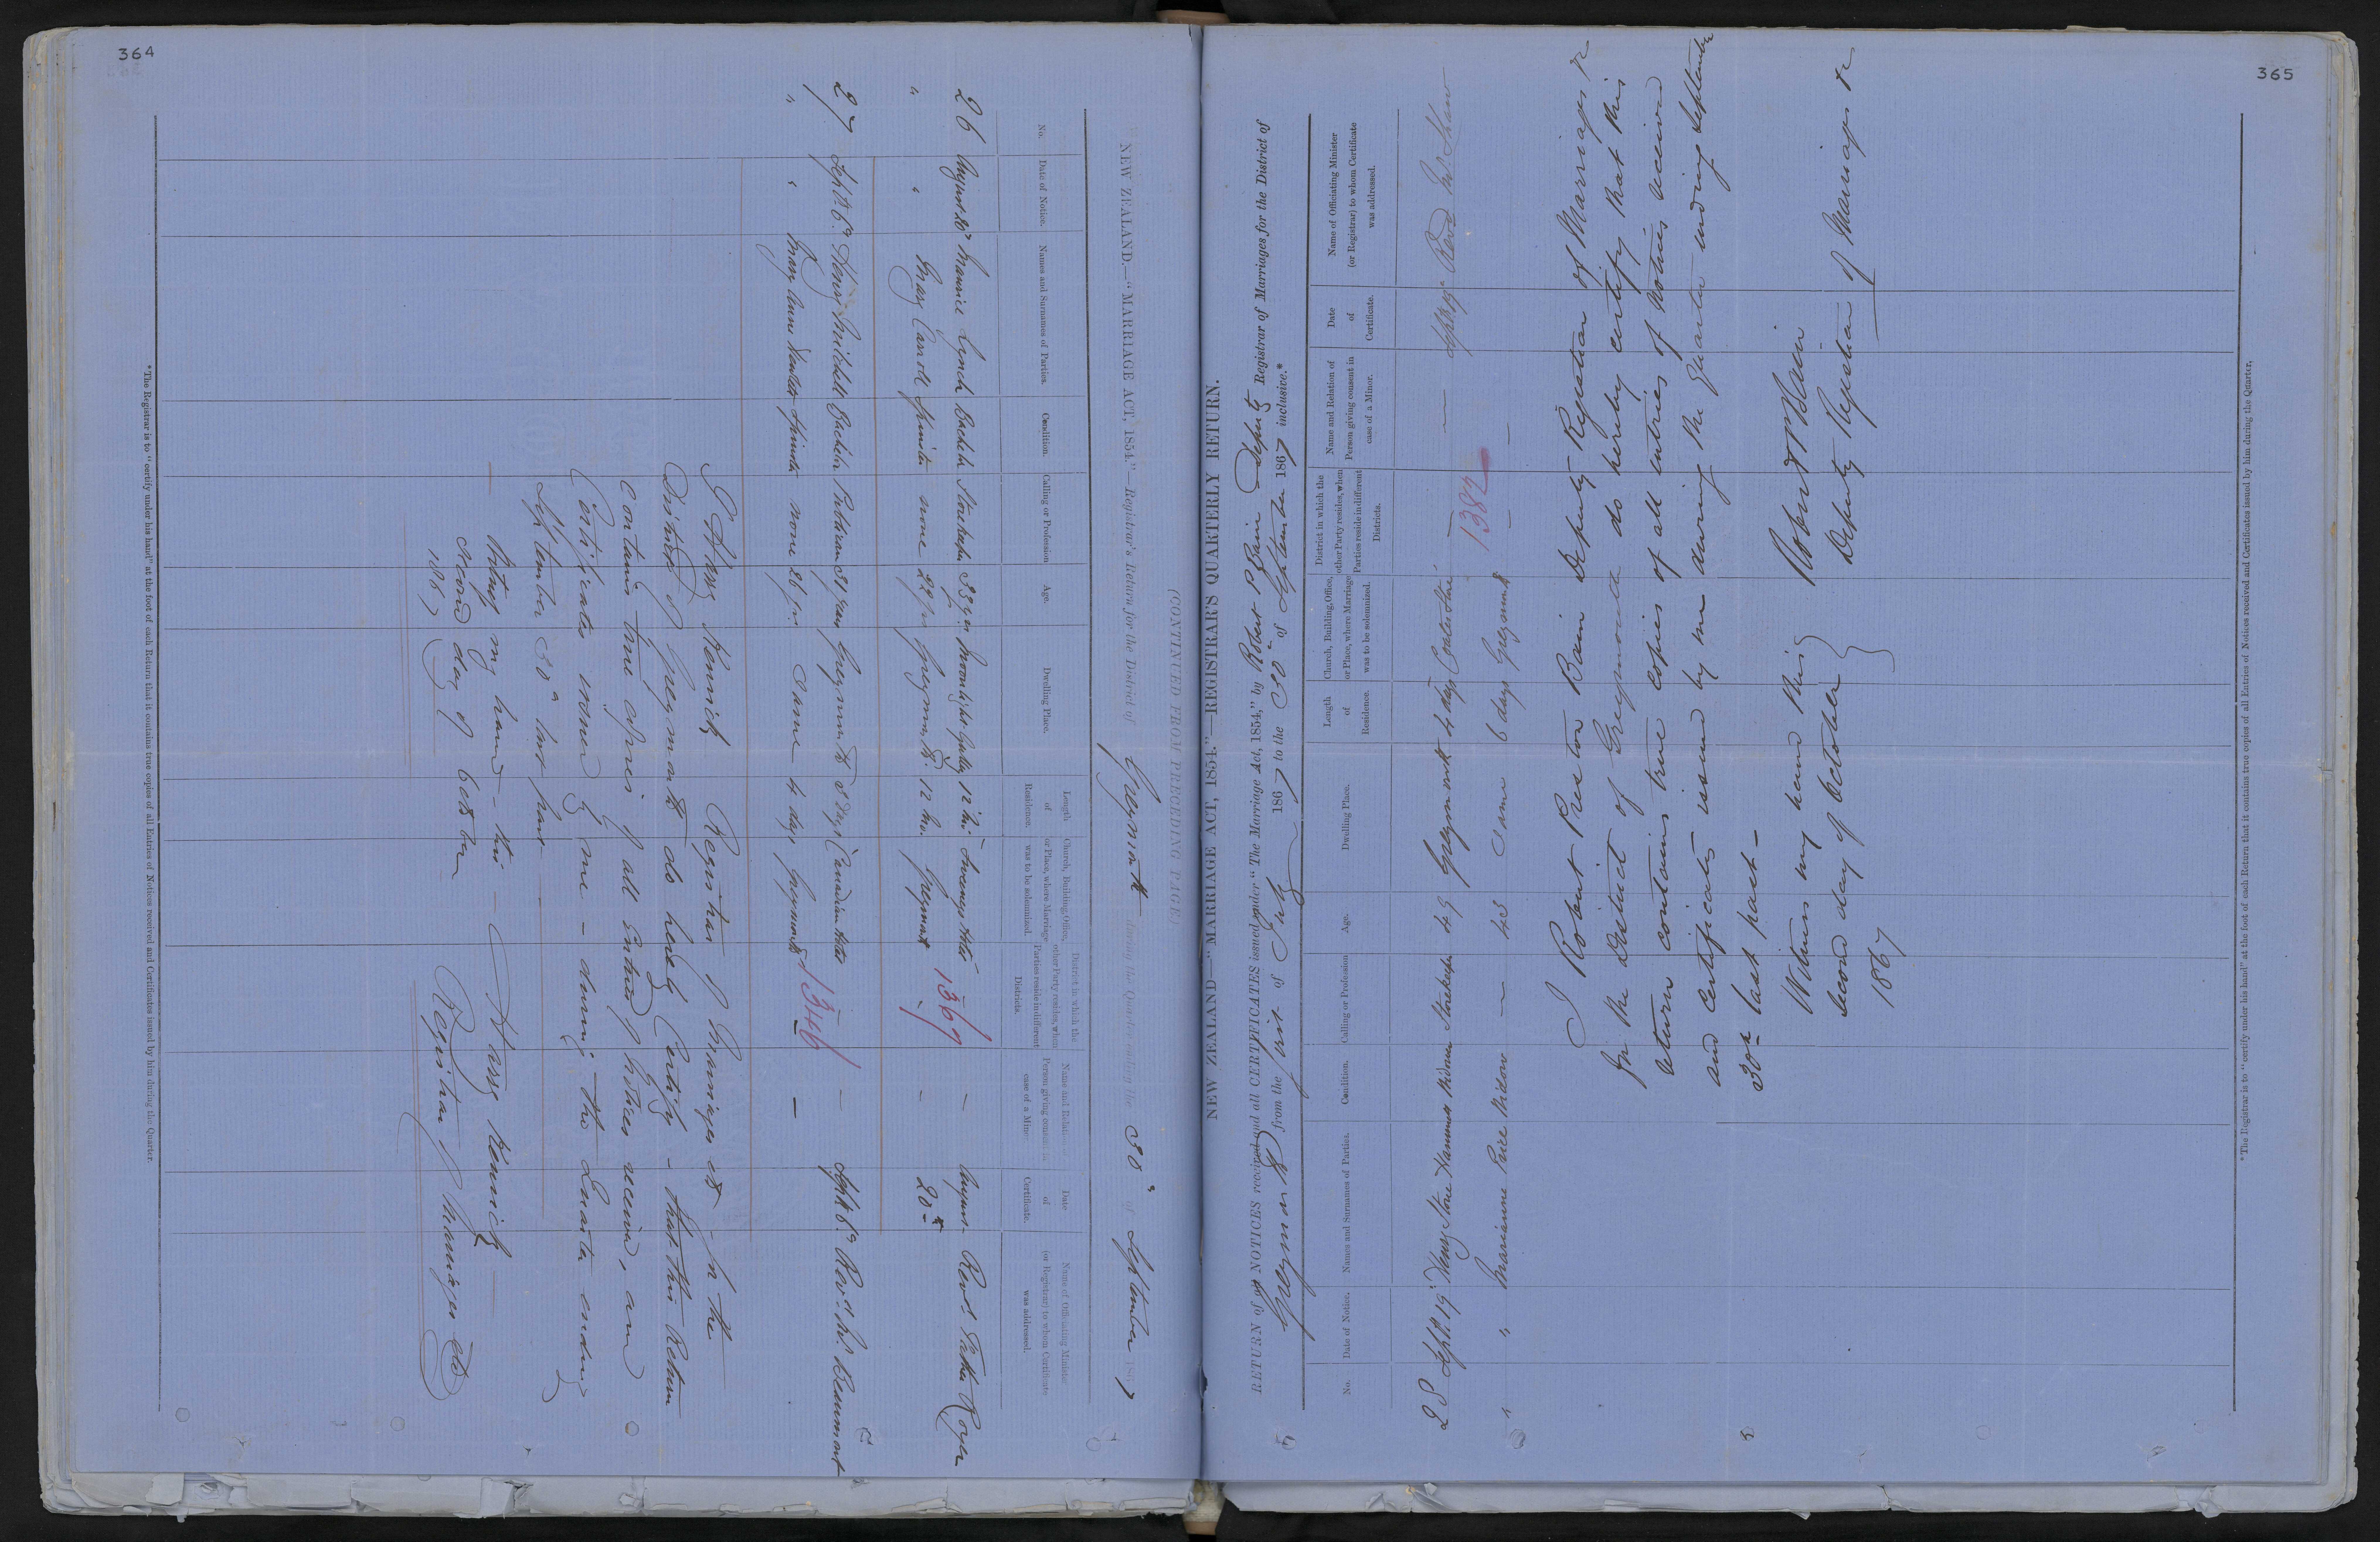 364
(CONTINUED FROM PRECEDING PAGE.)
NEW ZEALAND.—"MARRIAGE ACT, 1854."—Registrar's Return for the District of Greymouth during the Quarter ending the 30th of September 1867
No. Date of Notice. Names and Surnames of Parties. Condition. Calling or Profession Age. Dwelling Place. Length of Residence. Church, Building, Office, or Place, where Marriage was to be solemnized. District in which the other Party resides, when Parties reside in different Districts. Name and Relation of Person giving consent in case of a Minor. Date of Certificate. Name of Officiating Minister (or Registrar) to whom Certificate was addressed.
26 August 20th Maurice Lynch Bachelor Storekeeper 33 yrs Moonlight Gully 12 Mo. Hotel 1369 — August Revd. Father Royer
" " Mary Carroll Spinster none 22 yrs Greymouth 12 Mo. Greymouth — 20th
27 Septr. 6th Henry Bachelor 31 years Greymouth 3 days Canadian Hotel 1346 — Septr 6th Revd. W. Beaumont
" " Mary Anne Spinster none 26 yrs. Same 4 days Greymouth — —
I Harry Kenrick Registrar of Marriages &c - for the
District of Greymouth do hereby Certify - that this Return
contains true copies of all Entries of Notices received, and
Certificates issued by me - during the Quarter ending
September 30th last past
Witness my hand - this - Harry Kenrick
second day of October Registrar of Marriages &c
1867
*The Registrar is to "certify under his hand" at the foot of each Return that it contains true copies of all Entries of Notices received and Certificates issued by him during the Quarter.
365
NEW ZEALAND—"MARRIAGE ACT, 1854."—REGISTRAR'S QUARTERLY RETURN.
RETURN of all NOTICES received and all CERTIFICATES issued under "The Marriage Act, 1854," by Robert P Bain Deputy Registrar of Marriages for the District of
Greymouth from the first of July 1867 to the 30th of September 1867 inclusive.*
No. Date of Notice. Names and Surnames of Parties. Condition. Calling or Profession Age. Dwelling Place. Length of Residence. Church, Building, Office, or Place, where Marriage was to be solemnized. District in which the other Party resides, when Parties reside in different Districts. Name and Relation of Person giving consent in case of a Minor. Date of Certificate. Name of Officiating Minister (or Registrar) to whom Certificate was addressed.
28 Septr. 19th Henry Stone Widower Storekeeper 49 Greymouth 4 days — — Revd. W. Shaw
" " Marianne Price Widow — 43 Same 6 days Greymouth 1382 —
I Robert Preston Bain Deputy Registrar of Marriages &c
for the District of Greymouth do hereby certify that this
return contains true copies of all entries of Notices received
and certificates issued by me during the Quarter ending September
30th last past —
Witness my hand this Robert P Bain
second day of October Deputy Registrar of Marriages &c
1867
*The Registrar is to "certify under his hand" at the foot of each Return that it contains true copies of all Entries of Notices received and Certificates issued by him during the Quarter.